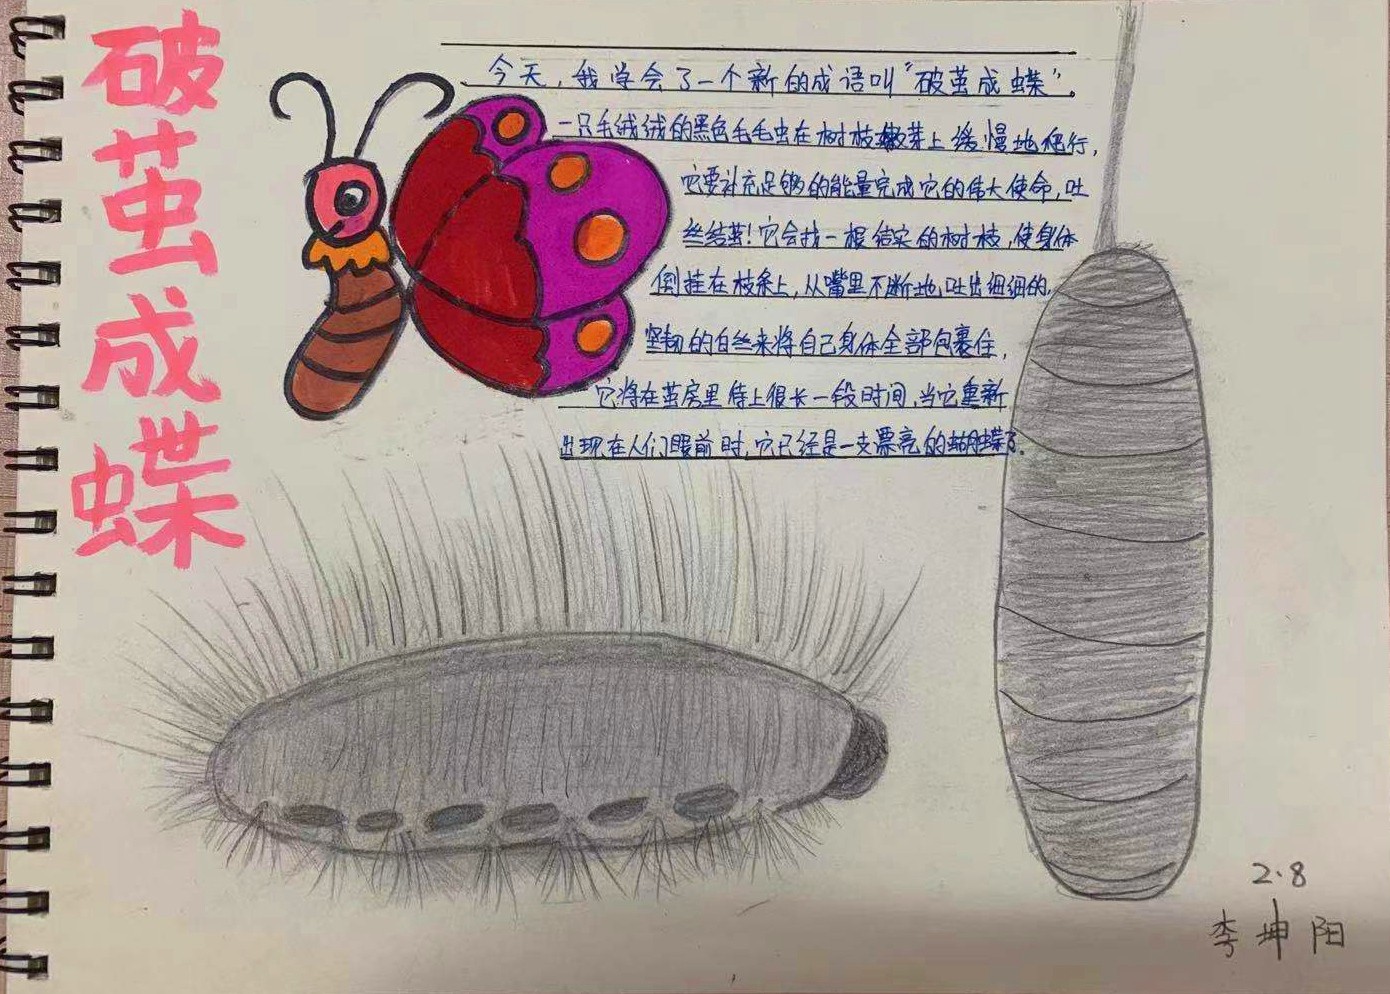 破茧成蝶
今天，我学会了一个新的成语叫“破茧成蝶”。
一只毛绒绒的黑色毛毛虫在树枝嫩芽上缓慢地爬行，
它要补充足够的能量完成它的伟大使命，吐
丝结茧！它会找一根结实的树枝，使身体
倒挂在枝条上，从嘴里不断地吐出细细的，
坚韧的白丝来将自己身体全部包裹住，
它将在茧房里待上很长一段时间，当它重新
出现在人们眼前时，它已经是一支漂亮的蝴蝶了。
2.8
李坤阳